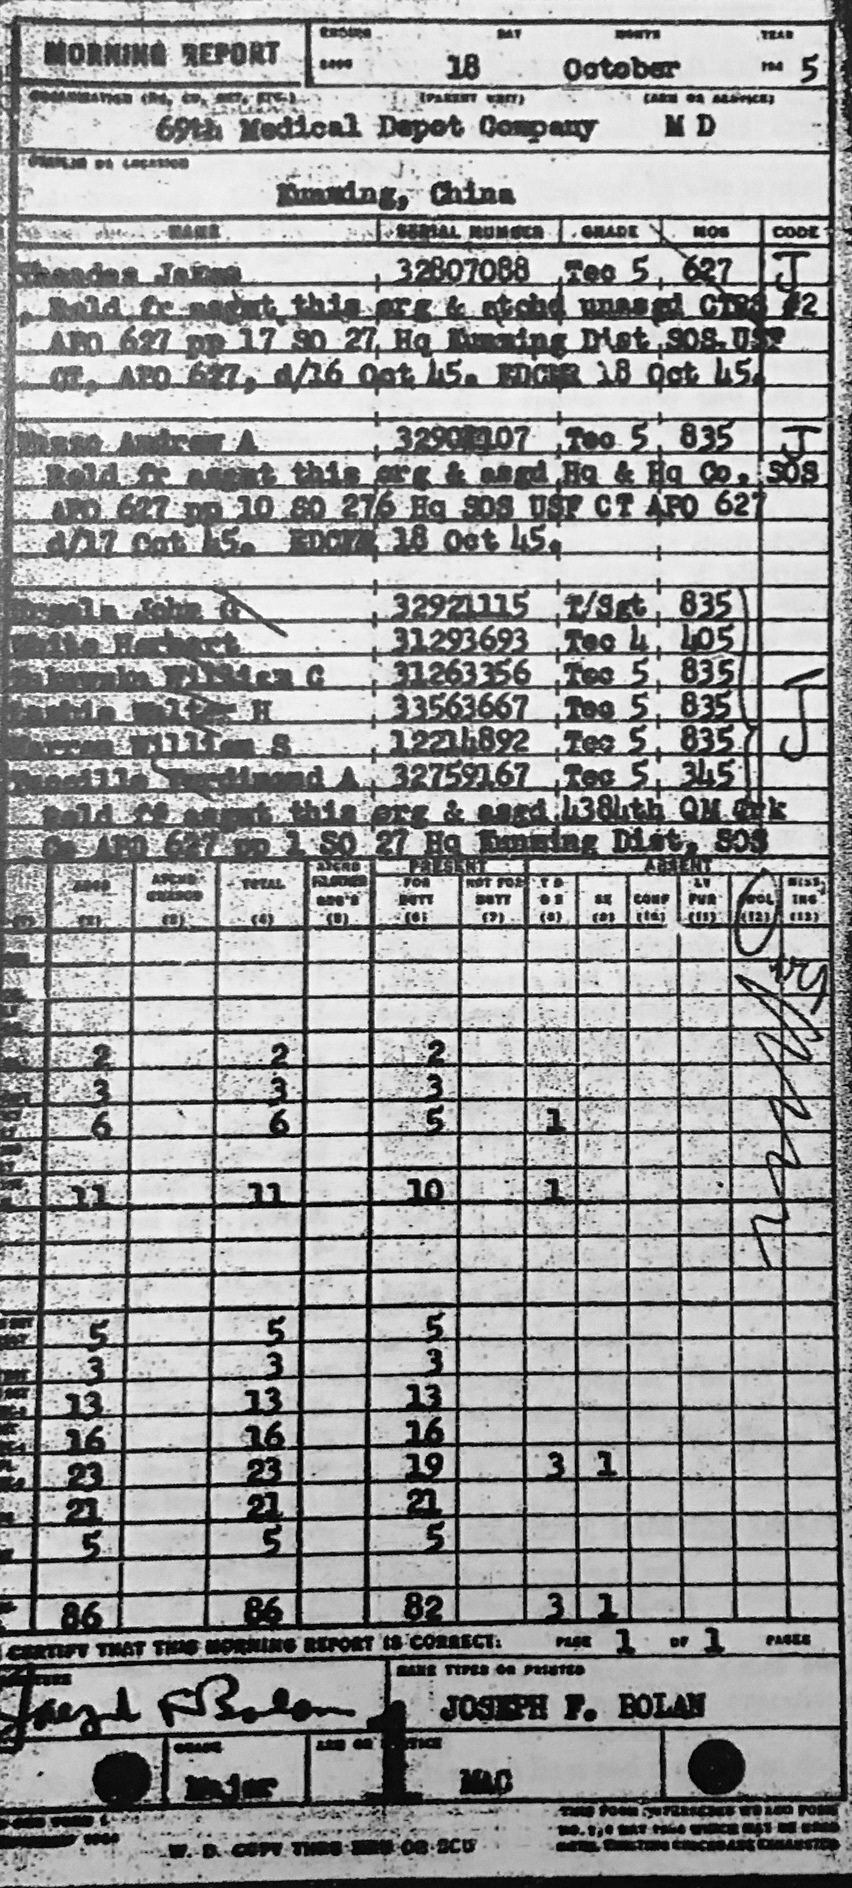 MORNING REPORT
ENDING DAY MONTH YEAR
18 October 194 5
ORGANIZATION (HQ, CO, DET, ETC.) (PARENT UNIT) (ARM OR SERVICE)
69th Medical Depot Company M D
STATION OR LOCATION
Kunming, China
NAME SERIAL NUMBER GRADE MOS CODE
32807088 Tec 5 627 J
Reld fr asgmt this org & atchd unasgd #2
APO 627 pp 17 SO 27 Hq Kunming Dist SOS USF
CT, APO 627, d/16 Oct 45. EDCMR 18 Oct 45.
Andrew A 107 Tec 5 835 J
Reld fr asgmt this org & asgd Hq & Hq Co, SOS
APO 627 pp 10 SO 276 Hq SOS USF CT APO 627
d/17 Oct 45. EDCMR 18 Oct 45.
John G 32921115 T/Sgt 835
Herbert 31293693 Tec 4 405
William C 31263356 Tec 5 835
Walter H 33563667 Tec 5 835 J
Warren William S 12214892 Tec 5 835
Ferdinand A 32759167 Tec 5 345
Reld fr asgmt this org & asgd 4384th QM Trk
Co APO 627 pp 1 SO 27 Hq Kunming Dist, SOS
PRESENT ABSENT
ASGD TOTAL FOR DUTY NOT FOR DUTY SK CONF
(4) (5) (6) (7) (8) (9) (10) (11) (12) (13)
2 2 2
3 3 3
6 6 5 1
11 11 10 1
5 5 5
3 3 3
13 13 13
16 16 16
23 23 19 3 1
21 21 21
5 5 5
86 86 82 3 1
CERTIFY THAT THIS MORNING REPORT IS CORRECT: PAGE 1 OF 1 PAGES
NAME TYPED OR PRINTED
Joseph F Bolan JOSEPH F. BOLAN
GRADE ARM OR SERVICE
Major MAC
W. D. COPY THRU MRU OR SCU